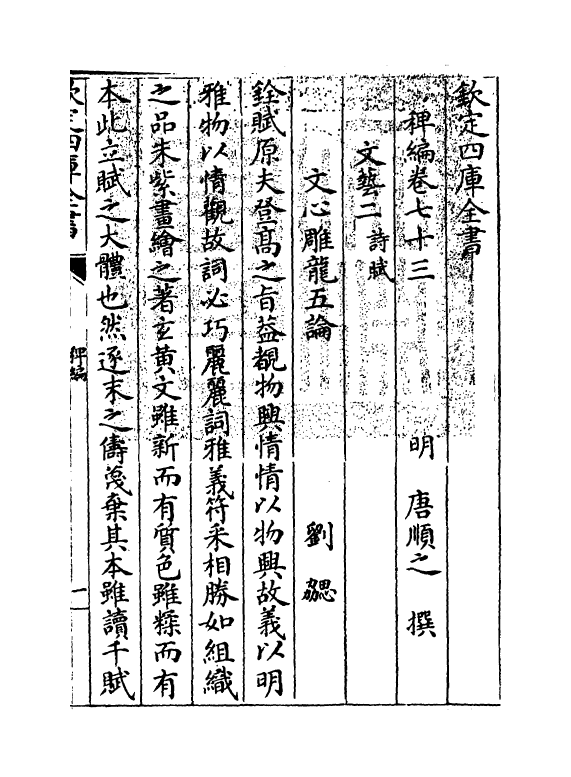 欽定四庫全書
稗編卷七十三 明 唐順之 撰
文藝二 詩賦
文心雕龍五論 劉勰
銓賦原夫登髙之旨葢覩物興情情以物興故義以明
雅物以情觀故詞必巧麗麗詞雅義符采相勝如組織
之品朱紫畫繪之著玄黄文雖新而有質色雖糅而有
本此立賦之大體也然逐末之儔蔑棄其本雖讀千賦
欽定四庫全書
稗編
一